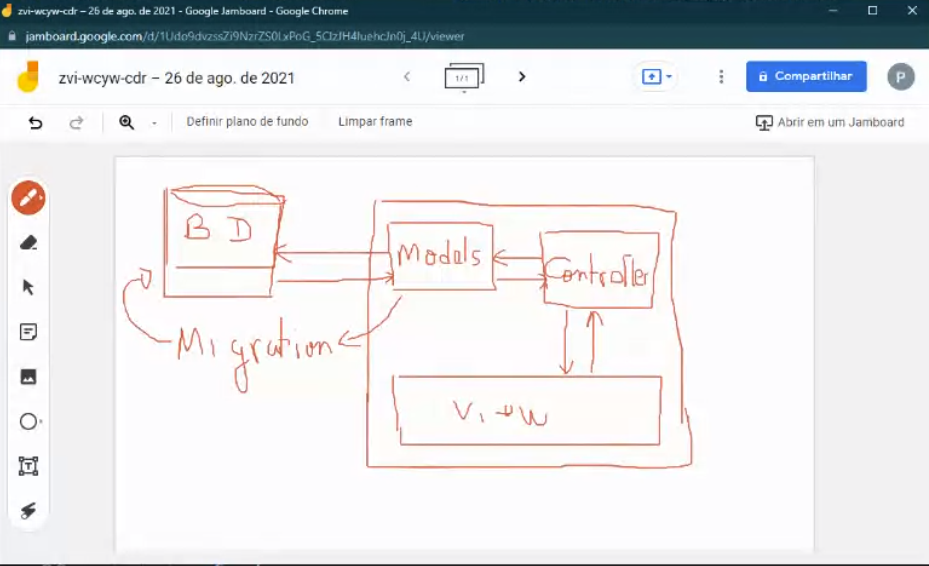 zvi-wcyw-cdr – 26 de ago. de 2021 - Google Jamboard - Google Chrome
jamboard.google.com/d/1Udo9dvzssZi9NzrZS0LxPoG_5CIzJH4IuehcJn0j_4U/viewer
zvi-wcyw-cdr – 26 de ago. de 2021
1/1
Compartilhar
P
Definir plano de fundo
Limpar frame
Abrir em um Jamboard
BD
Models
Controller
Migration
View